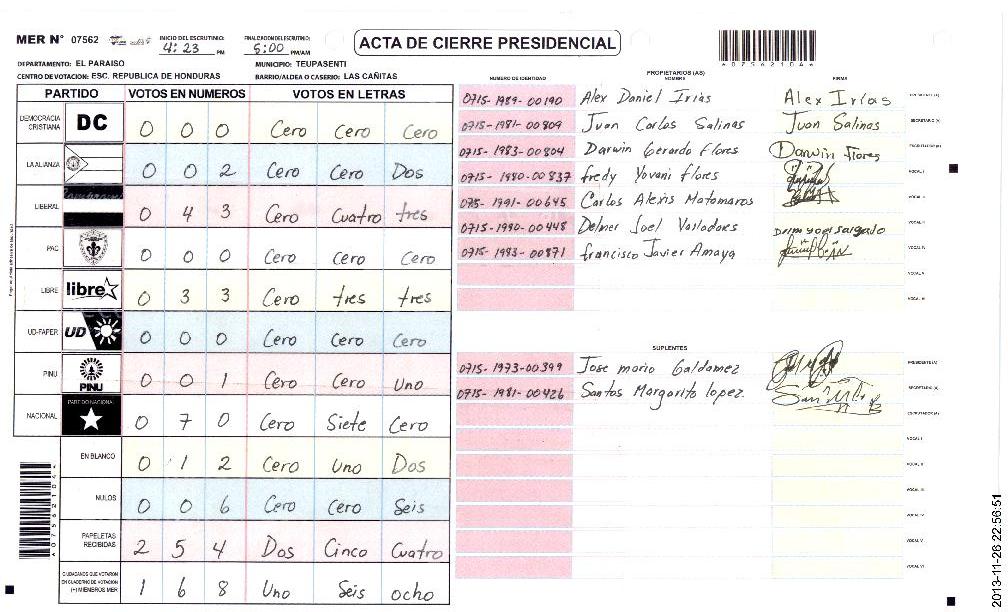 MER N° 07562
INICIO DEL ESCRUTINIO: 4:23 PM
FINALIZACION DEL ESCRUTINIO: 5:00 PM/AM
ACTA DE CIERRE PRESIDENCIAL
A07562104
DEPARTAMENTO: EL PARAISO
MUNICIPIO: TEUPASENTI
CENTRO DE VOTACION: ESC. REPUBLICA DE HONDURAS
BARRIO/ALDEA O CASERIO: LAS CAÑITAS
PARTIDO VOTOS EN NUMEROS VOTOS EN LETRAS
DEMOCRACIA CRISTIANA DC 0 0 0 Cero Cero Cero
LA ALIANZA 0 0 2 Cero Cero Dos
LIBERAL 0 4 3 Cero Cuatro tres
PAC 0 0 0 Cero Cero Cero
LIBRE libre 0 3 3 Cero tres tres
UD-FAPER UD 0 0 0 Cero Cero Cero
PINU PINU 0 0 1 Cero Cero Uno
NACIONAL PARTIDO NACIONAL 0 7 0 Cero Siete Cero
EN BLANCO 0 1 2 Cero Uno Dos
NULOS 0 0 6 Cero Cero Seis
PAPELETAS RECIBIDAS 2 5 4 Dos Cinco Cuatro
CIUDADANOS QUE VOTARON
EN CUADERNO DE VOTACION
(+) MIEMBROS MER 1 6 8 Uno Seis ocho
A07562104
NUMERO DE IDENTIDAD PROPIETARIOS (AS) NOMBRE FIRMA
0715-1989-00190 Alex Daniel Irias Alex Irías PRESIDENTE (A)
0715-1981-00809 Juan Carlos Salinas Juan Salinas SECRETARIO (A)
0715-1983-00804 Darwin Gerardo Flores Darwin flores ESCRUTADOR (A)
0715-1980-00837 fredy Yovani flores VOCAL I
0715-1991-00645 Carlos Alexis Matamoros VOCAL II
0715-1990-00448 Delmer Joel Valladares VOCAL III
0715-1983-00871 francisco Javier Amaya VOCAL IV
VOCAL V
VOCAL VI
SUPLENTES
0715-1973-00399 Jose mario Galdamez PRESIDENTE (A)
0715-1981-00426 Santos Margarito lopez. SECRETARIO (A)
ESCRUTADOR (A)
VOCAL I
VOCAL II
VOCAL III
VOCAL IV
VOCAL V
VOCAL VI
2013-11-26 22:56:51